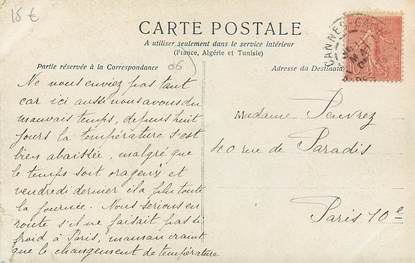 15 €
CARTE POSTALE
A utiliser seulement dans le service intérieur
(France, Algérie et Tunisie)
Partie réservée à la Correspondance
06
Adresse du Destinata
CANNES
Ne nous enviez pas tant
car ici aussi nous avons du
mauvais temps, depuis huit
jours la température s'est
bien abaissée, malgré que
le temps soit orageux et
vendredi dernier il a plu toute
la journée. Nous serions en
route s'il ne faisait pas si
froid à Paris, maman craint
que le changement de température
Madame Peuvrez
40 rue de Paradis
Paris 10e